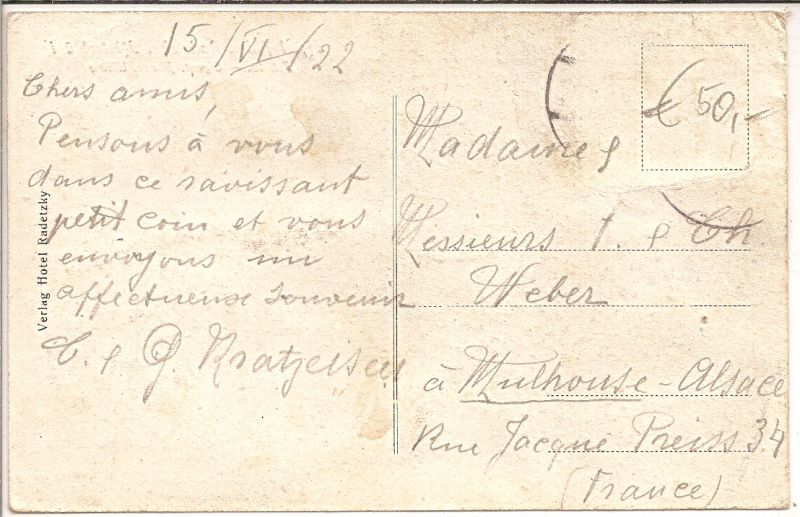 15/VI/22
Chers amis,
Pensons à vous
dans ce ravissant
petit coin et vous
envoyons un
affectueuse souvenir
& J. Kratzeisen
Verlag Hotel Radetzky
€ 50,-
Madame &
Messieurs & Ch.
Weber
à Mulhouse - Alsace
Rue Jacque Preiss 34
(France)